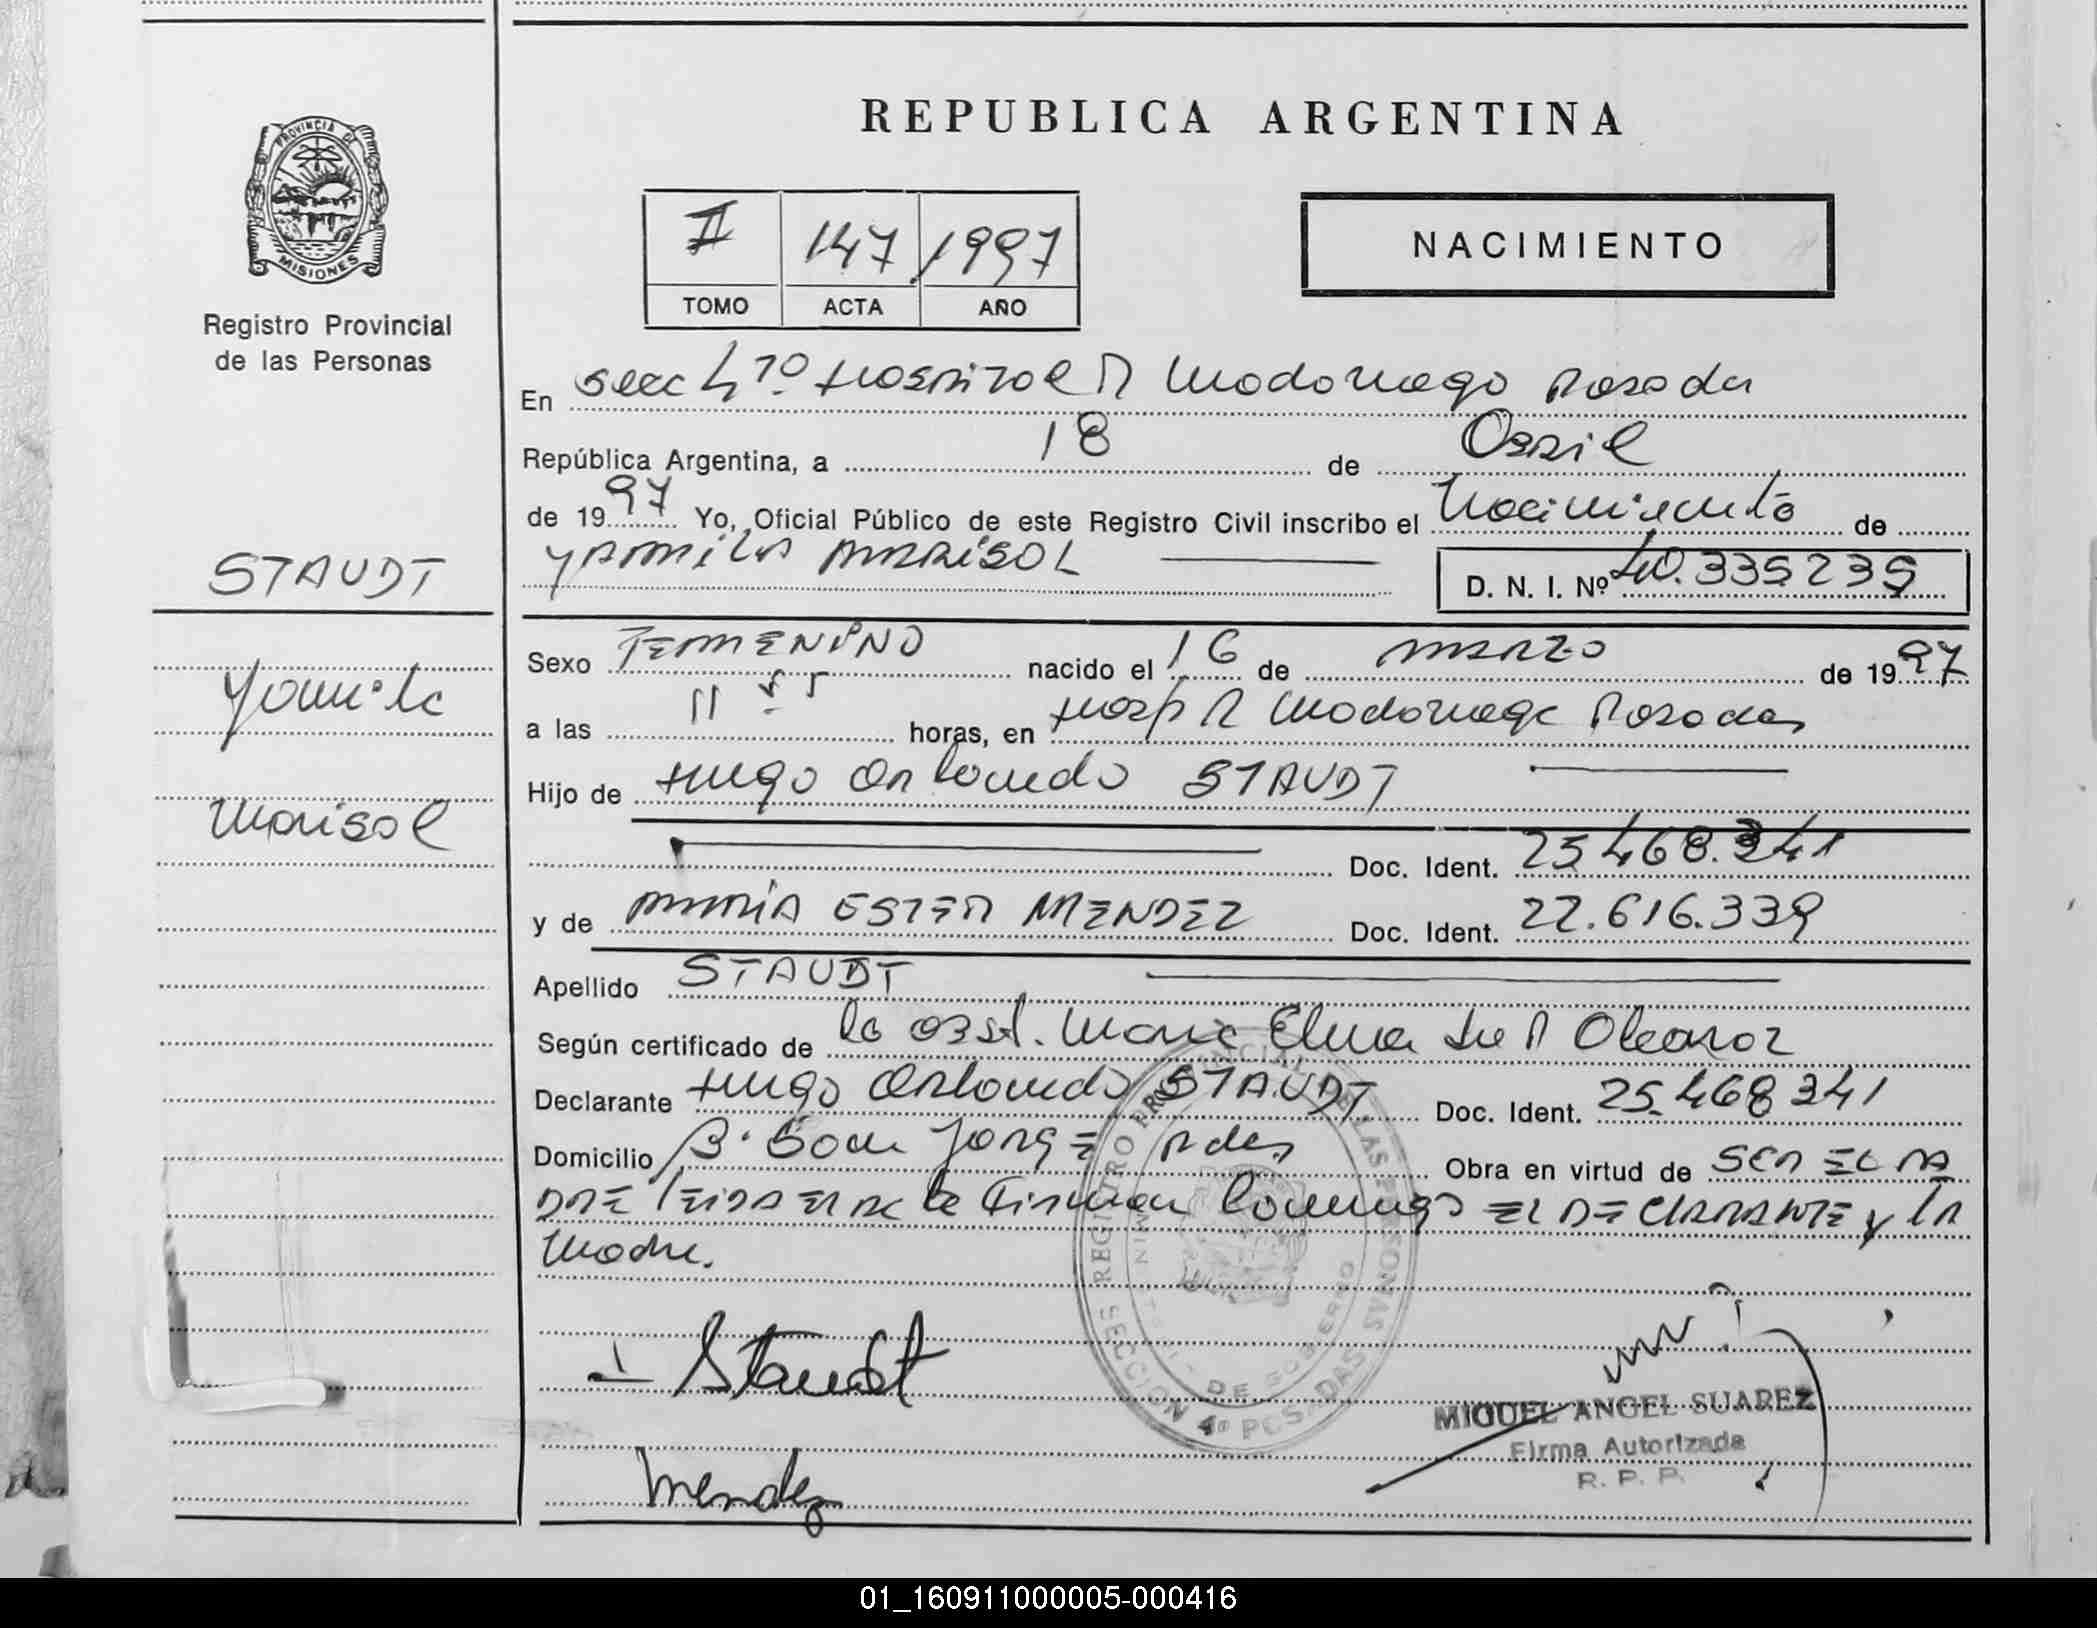 REPUBLICA ARGENTINA
PROVINCIA DE
MISIONES
Registro Provincial
de las Personas
II 147 1997
TOMO ACTA AÑO
NACIMIENTO
En Secc 4ta Hospital R Madariaga Posadas
República Argentina, a 18 de Abril
de 1997 Yo, Oficial Público de este Registro Civil inscribo el Nacimiento de
YAMILA MARISOL
D. N. I. Nº 40.335239
STAUDT
Yamila
Marisol
Sexo FEMENINO nacido el 16 de MARZO de 1997
a las 11 horas, en Hosp R Madariaga Posadas
Hijo de Hugo Orlando STAUDT
Doc. Ident. 25468.341
y de MARÍA ESTER MENDEZ Doc. Ident. 22.616.339
Apellido STAUDT
Según certificado de la obst. Maria Elina
Declarante Hugo Orlando STAUDT Doc. Ident. 25.468341
Domicilio B. San JORGE Pdas Obra en virtud de SER EL PA
DRE LEIDA EL ACTA la firman conmigo EL DECLARANTE y LA
Madre.
REGISTRO PROVINCIAL DE LAS PERSONAS
SECCION 4a POSADAS
DE GOBIERNO
Staudt
Mendez
MIGUEL ANGEL SUAREZ
Firma Autorizada
R. P. P.
01_160911000005-000416